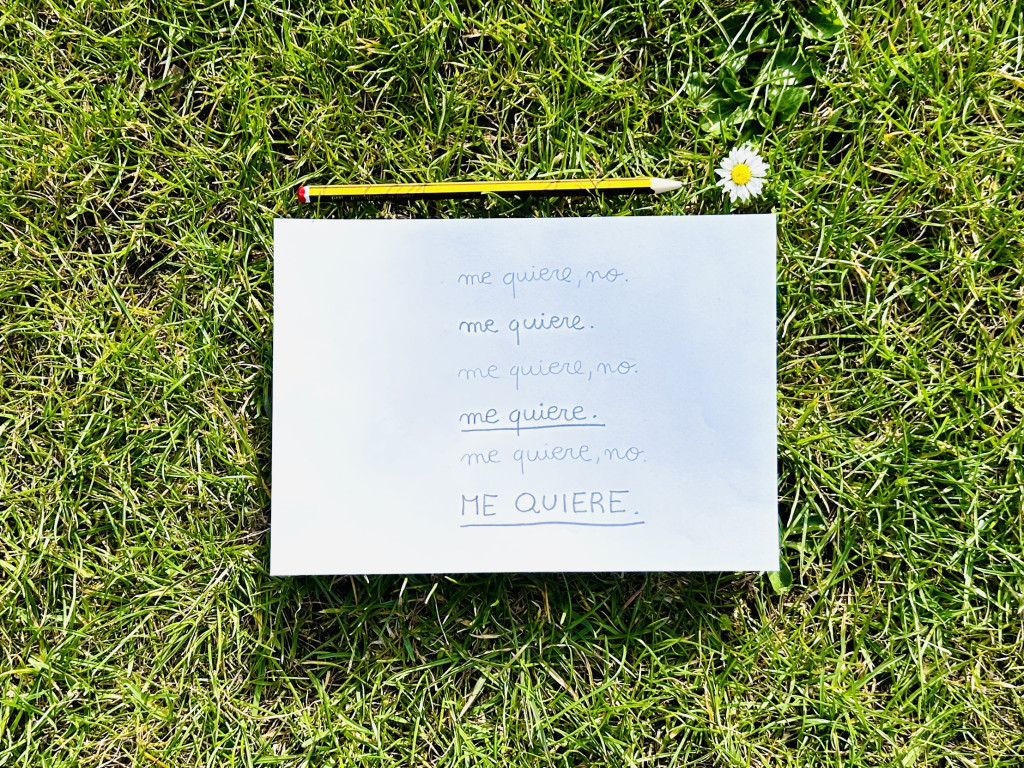 me quiere, no.
me quiere.
me quiere, no.
me quiere.
me quiere, no.
ME QUIERE.